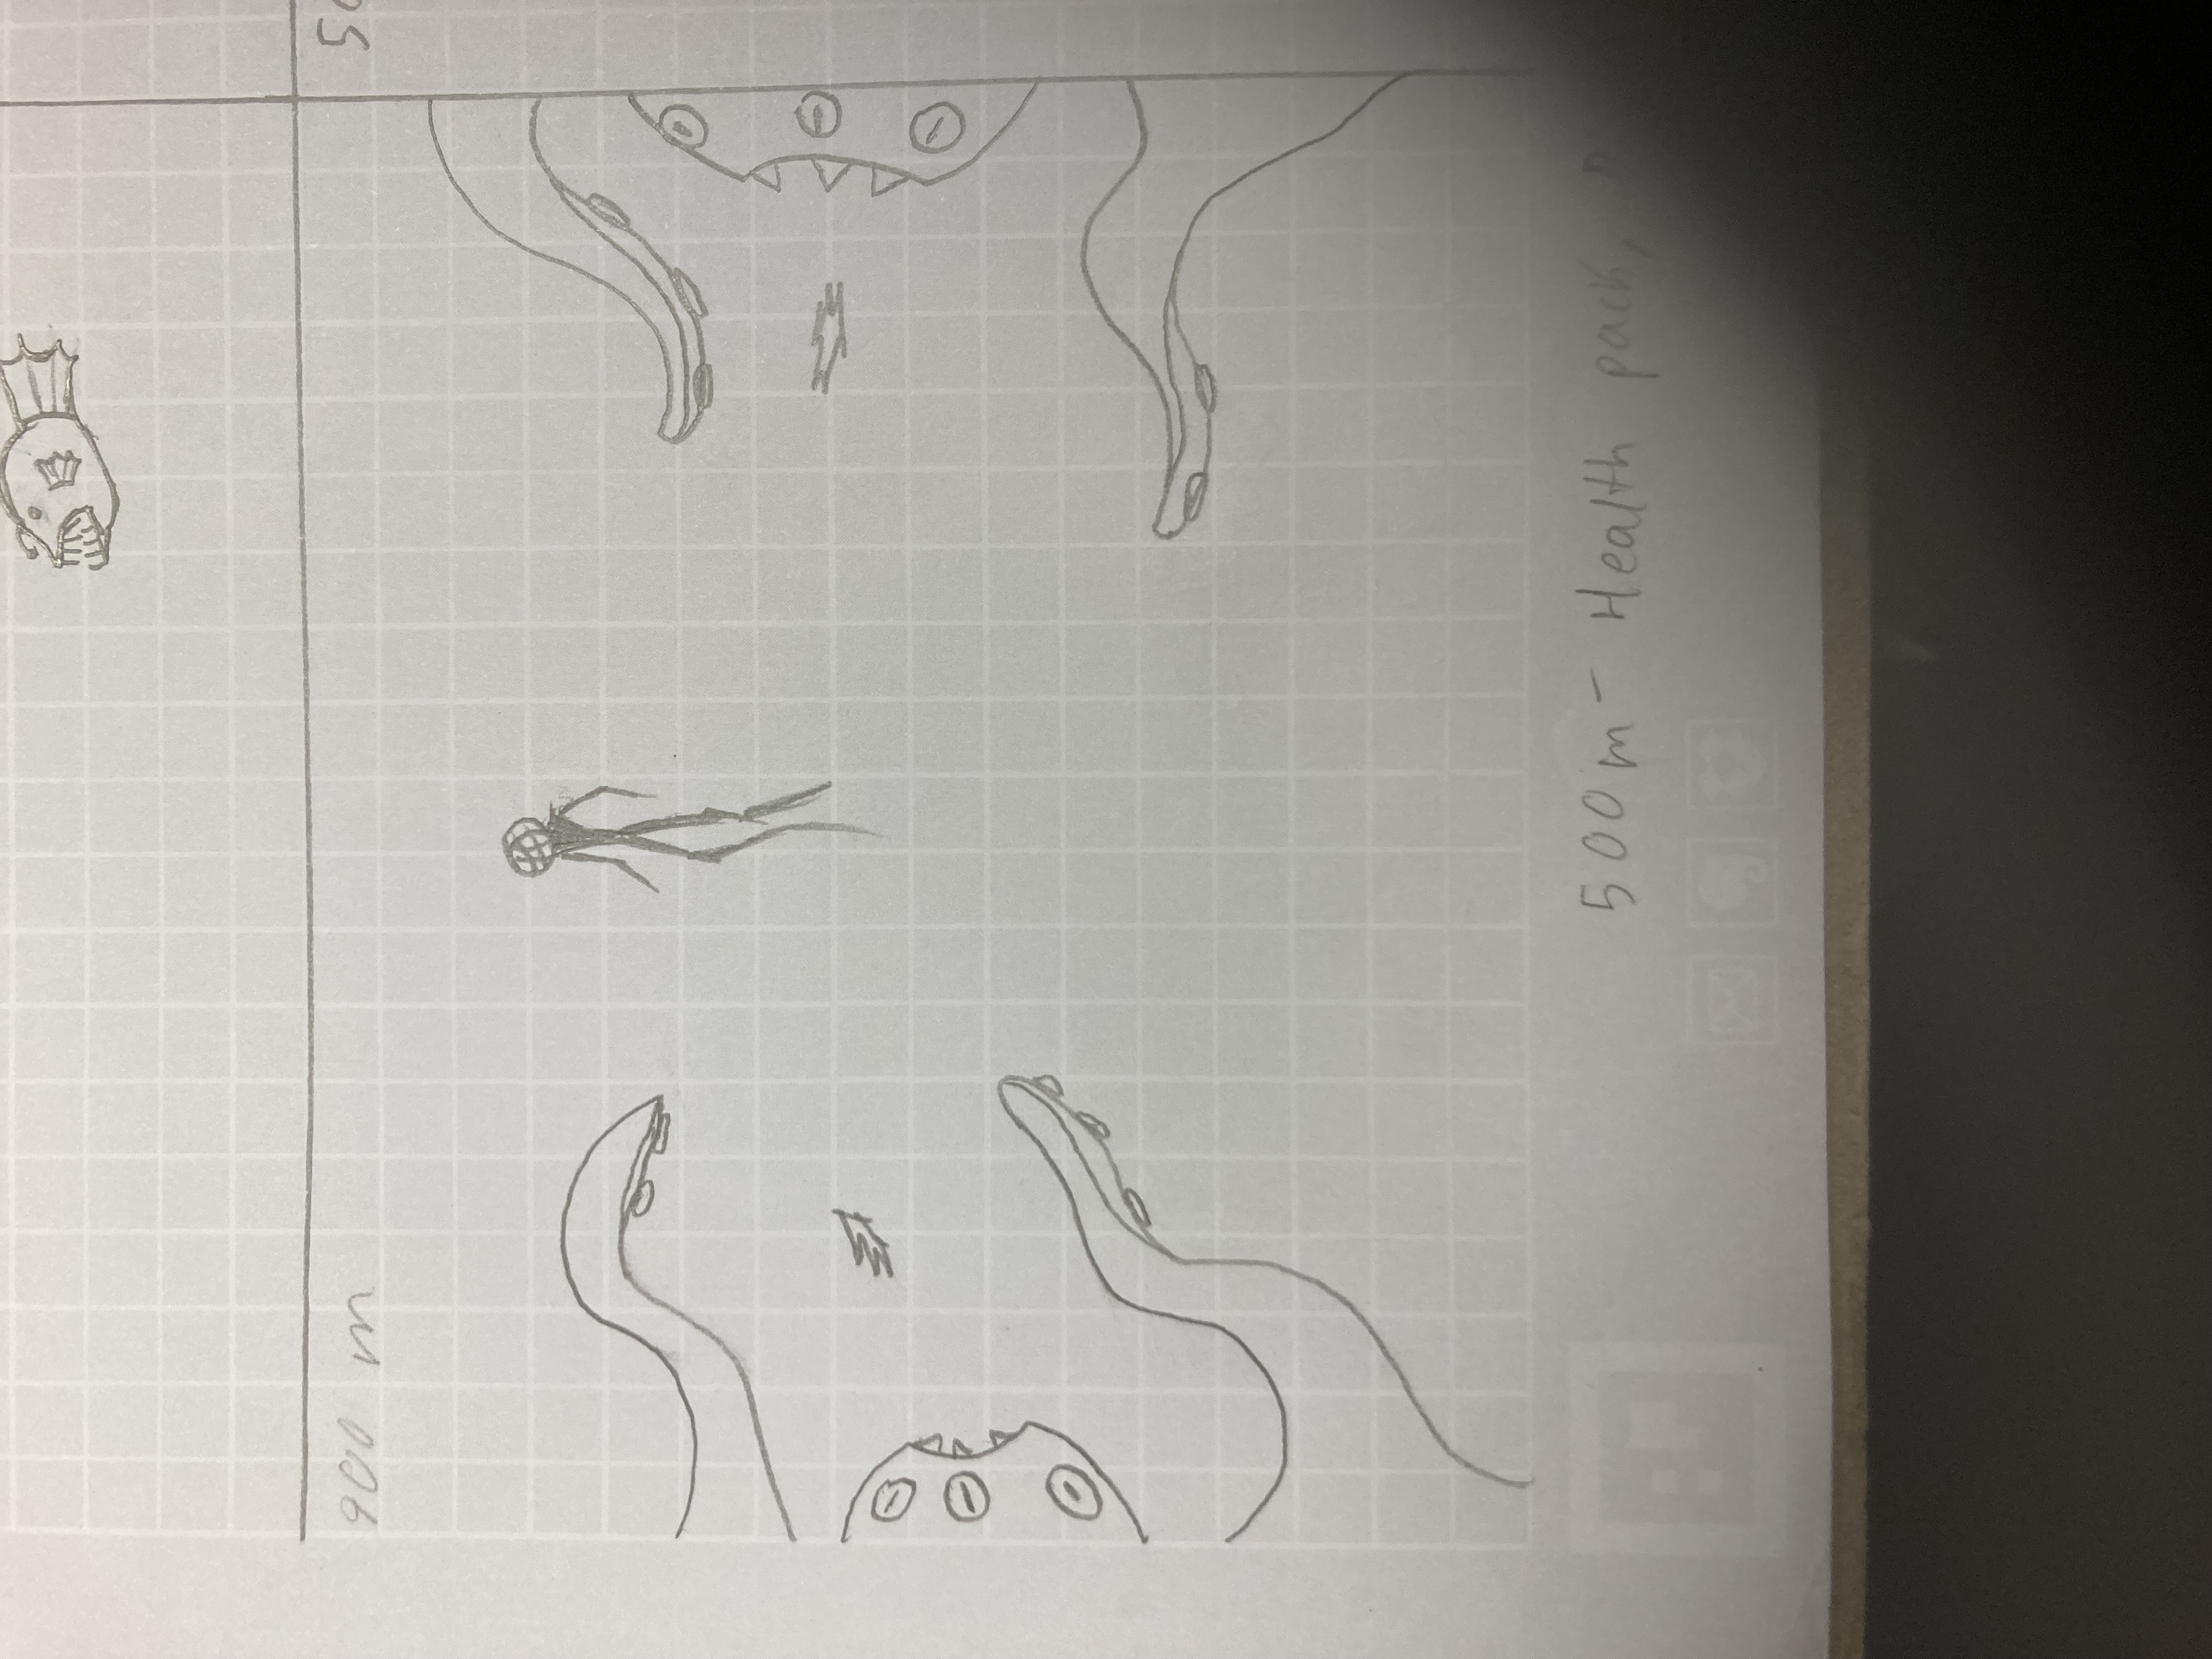 900 m
500m - Health pack,